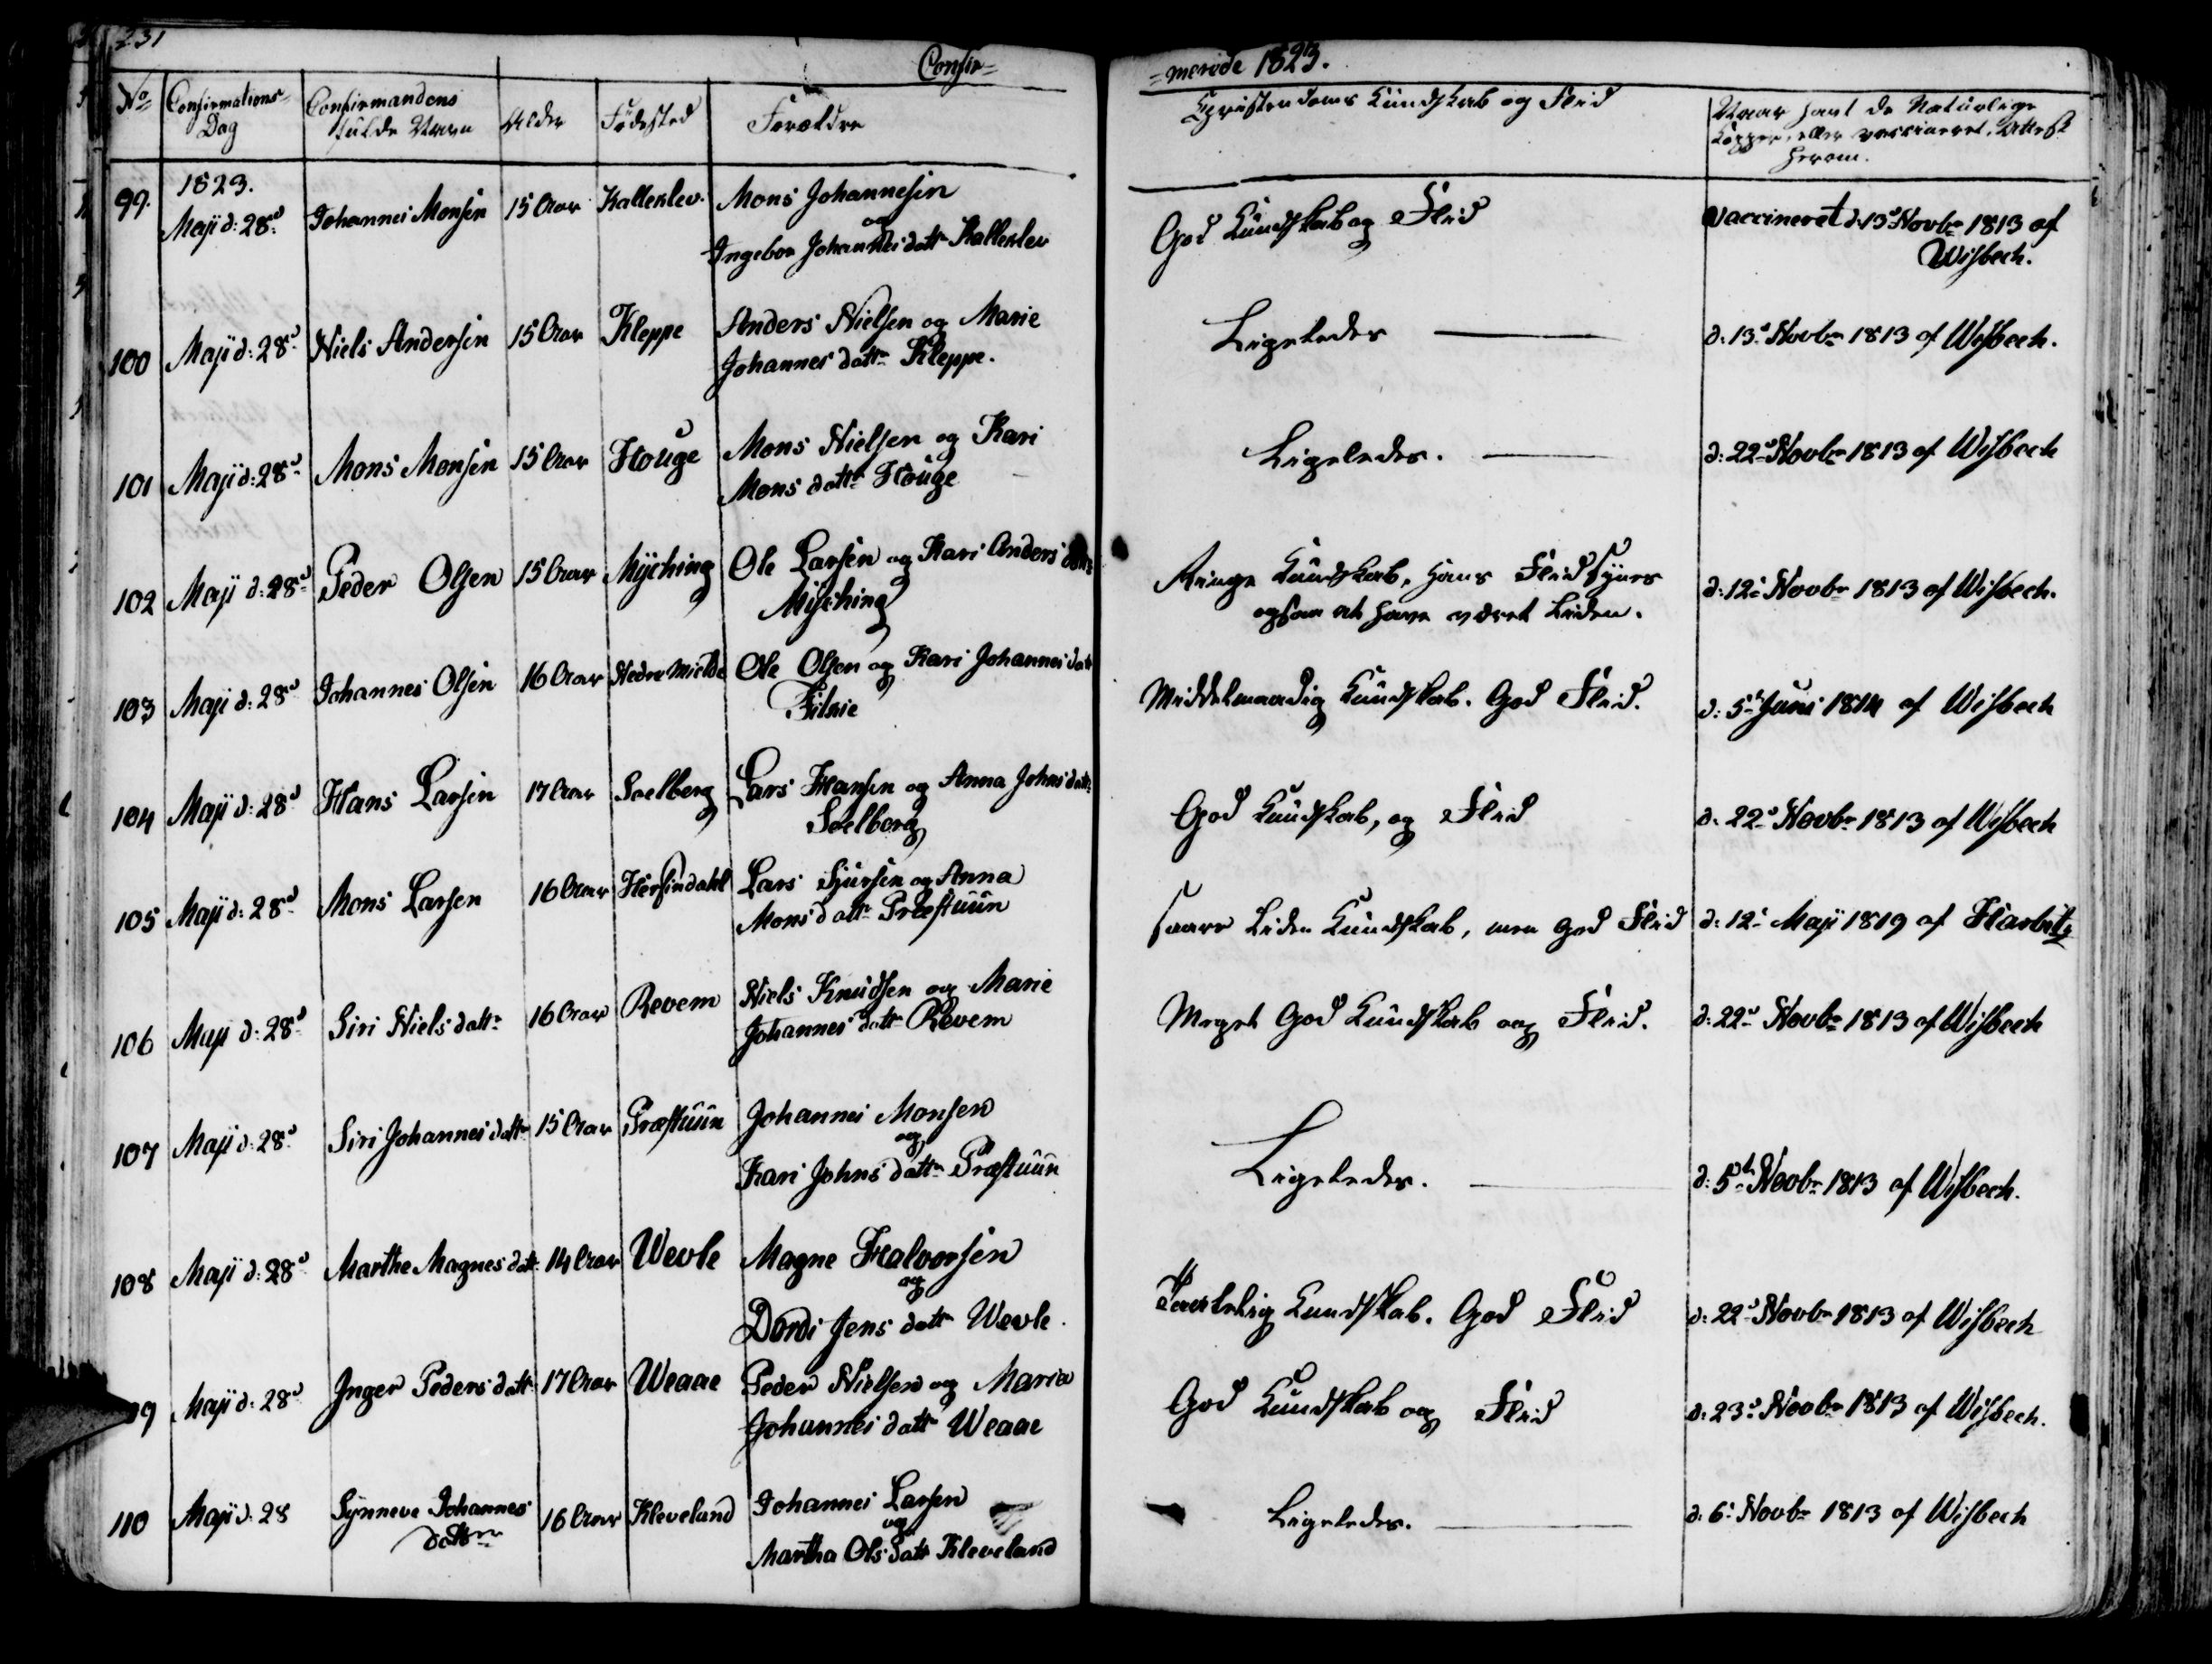 231
Confir=
=merede 1823.
No
Confirmations=
Dag
Confirmandens
fulde Navn
Alder
Födested
Forældre
Christendoms Kundskab og Flid
Naar havt de Naturlige
Kopper, eller vaccineret, Attest
herom.
99. 1823.
Maji d: 28d Johannes Monsen 15 Aar Kalleklev. Mons Johannesen
og
Ingebor Johannes dattr Kalleklev
God Kundskab og Flid
vaccineret d: 13d Novbr 1813 af
Wisbech.
100 Maji d: 28d Niels Andersen 15 Aar Kleppe Anders Nielsen og Marie
Johannes dattr Kleppe.
Ligeledes
d: 13d Novbr 1813 af Wisbech.
101 Maji d: 28d Mons Monsen 15 Aar Houge Mons Nielsen og Kari
Mons dattr Houge
Ligeledes.
d: 22d Novbr 1813 af Wisbech
102 Maji d: 28d Peder Olsen 15 Aar Myching Ole Larsen og Kari Anders dattr
Myching
Ringe Kundskab, hans Flid synes
ogsaa at have været Liden.
d: 12te Novbr 1813 af Wisbech.
103 Maji d: 28d Johannes Olsen 16 Aar Nedre Mielde Ole Olsen og Kari Johannes datt
Middelmaadig Kundskab. God Flid.
d: 5te Juni 1814 af Wisbech
104 Maji d: 28d Hans Larsen 17 Aar Soelberg Lars Hansen og Anna Johns dattr
Soelberg
God Kundskab, og Flid
d: 22d Novbr 1813 af Wisbech
105 Maji d: 28d Mons Larsen 16 Aar Hersindahl Lars Sjursen og Anna
Mons dattr Præstuun
saare Liden Kundskab, men God Flid
d: 12te Maji 1819 af Harbitz
106 Maji d: 28d Siri Niels dattr 16 Aar Revem Niels Knudsen og Marie
Johannes dattr Revem
Meget God Kundskab og Flid.
d: 22d Novbr 1813 af Wisbech
107 Maji d: 28d Siri Johannes dattr 15 Aar Præstuun Johannes Monsen
og
Kari Johns dattr Præstuun
Ligeledes.
d: 5te Novbr 1813 af Wisbech.
108 Maji d: 28d Marthe Magnes datt 14 Aar Wevle Magne Halvorsen
og
Dordi Jens dattr Wevle.
Taalelig Kundskab. God Flid
d: 22d Novbr 1813 af Wisbech
09 Maji d: 28d Inger Peders datt 17 Aar Weaae Peder Nielsen og Maria
Johannes dattr Weaae
God Kundskab og Flid
d: 23d Novbr 1813 af Wisbech.
110 Maji d: 28 Synneve Johannes
dattr
16 Aar Kleveland Johannes Larsen
og
Martha Ols datt Kleveland
Ligeledes.
d: 6te Novbr 1813 af Wisbech